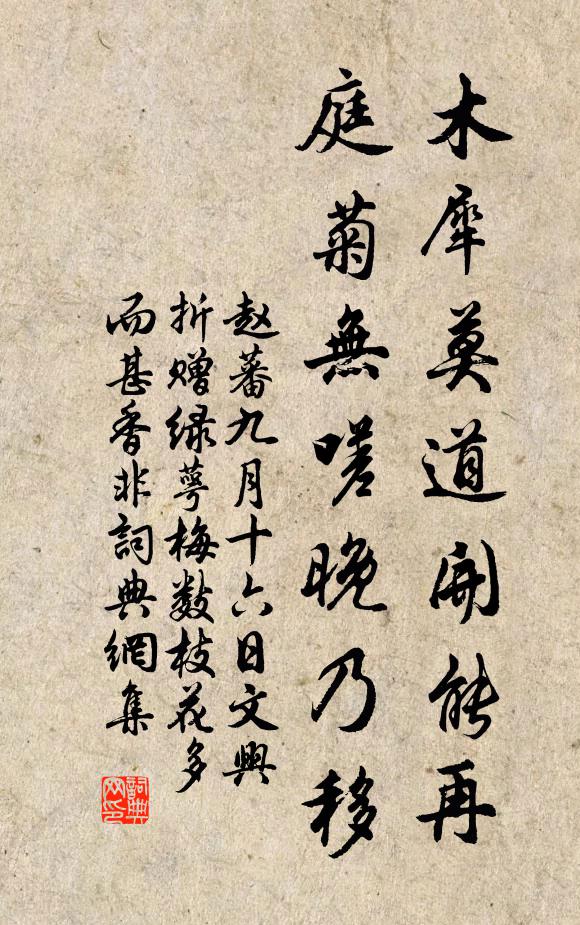 木犀莫道開能再
庭菊無嗟晚乃移
赵蕃九月十六日文興
折赠绿萼梅数枝花多
而甚香非詞典網集
詞典網印